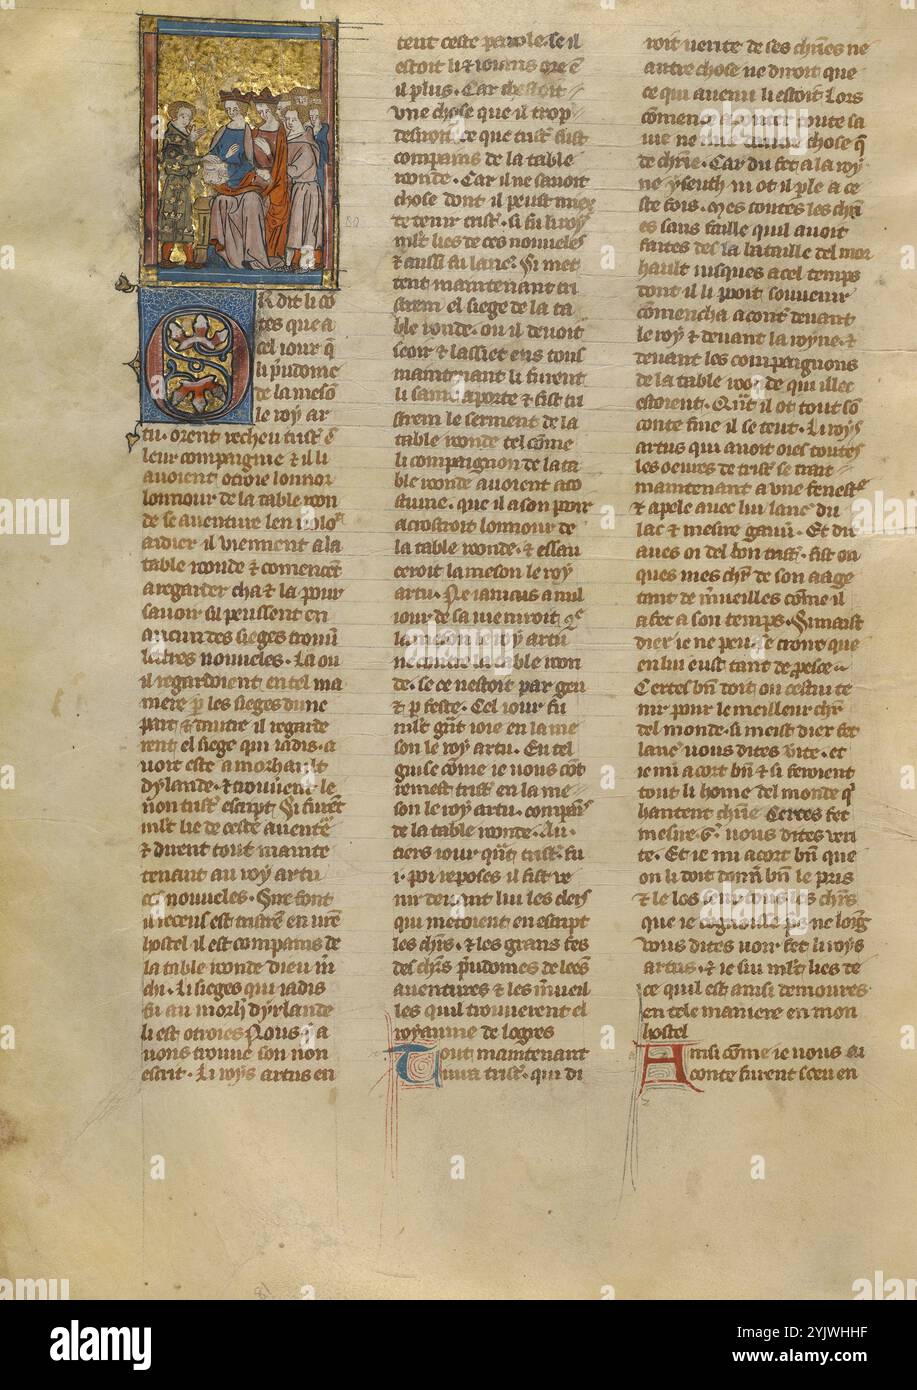 r dit li co
tes que a
cel iour q̃
li p̃udome
de la mesõ
le roy ar
tu. orent recheu trist̃ ẽ
leur compaignie & il li
auoient otroie lonnor
lonnour de la table ron
de se auenture len uolo
aidier il uiennent a la
table ronde & comencẽt
a regarder cha & la pour
sauoir sil peussent en
aucun des sieges trouũ
letres nouueles. La ou
il regardoient en tel ma
niere p̃ les sieges dune
part & dautre il regarde
rent el siege qui iadis. a
uoit este a morhault
dyrlande. & trouuent le
nõn trist̃ escript. Si furẽt
mlt̃ lie de ceste auentẽ
& dient tout mainte
tenant au roy artu
ces nouueles. Sire font
il recens est tristrẽ en ũrẽ
hostel il est compains de
la table ronde dieu m̃
chi. Li sieges qui iadis
fu au morlt̃ dyrlande
li est otroies Nous y a
uons trouue son non
escrit. Li roys artus en
tent ceste parole. se il
estoit liẽ & ioians ore ẽ
il plus. Car chestoit
vne chose que il trop
desiroit. ce que trist̃ fust
compains de la table
ronde. Car il ne sauoit
chose dont il peust miex
retenir trist̃. si fu li roy
mlt̃ lies de ces nouueles
& aussi fu lanc̃. Si met
tent maintenant tri
strem el siege de la ta
ble ronde. ou il deuoit
seoir & lassiet ens tout
maintenant li furent
li saint aporte & fist tri
strem le serment de la
table ronde tel cõme
li compaignon de la ta
ble ronde auoient aco
stume. que il a son pooir
acroistroit lonnour de
la table ronde. & essau
ceroit la meson le roy
artu. Ne iamais a nul
iour de sa uie niroit q̃
la meson le roy artu
ne contre la table ron
de. se ce nestoit par geu
& p̃ feste. Cel iour fu
mlt̃ grãt ioie en la me
son le roy artu. En tel
guise cõme ie uous cõt
remest trist̃ en la me
son le roy artu. compaĩs
de la table ronde. Au
tiers iour quãt trist̃ fu
.i. poi reposes il fist ve
nir deuant lui les clers
qui metoient en escript
les chr̃s. & les grans fes
des chr̃s p̃udomes de lees
auentures & les m̃ueil
les quil trouuerent el
royaume de logres
Tout maintenant
uint trist̃. qui di
roit uerite de ses chr̃ies ne
autre chose ne diroit que
ce qui auenu li estoit. Lors
cõmenche a conter toute sa
uie ne nule chose q̃
de chr̃ie. Car du fet a la roy
ne yseuth ni ot il ple a ce
ste fois. Mes toutes les chr̃i
es sans faille quil auoit
faites des la bataille del mor
hault iusques a cel temps
dont il li pooit souuenir
cõmencha a cont̃ deuant
le roy & deuant la royne. &
deuant les compaignons
de la table roonde qui illec
estoient. Quãt il ot tout sõ
conte fine il se teut. Li roys
artus qui auoit oies toutes
les oeures de trist̃ se trait
maintenant a vne fenest̃
& apele auec lui lanc̃ du
lac & mesire gauuĩ. Et dit
aues oi del bon trist̃. fist on
ques mes chr̃ de son aage
tant de m̃ueilles cõme il
a fet a son temps. Si maist
diex ie ne peusse croire que
en lui eust tant de proesce
Certes bñ doit on cestui te
nir pour le meilleur chr̃
del monde. si meist diex fet
lanc̃ uous dites uite. et
ie mi acort bñ & si feroient
tout li home del monde q̃
hantent chr̃ie. Certes fet
mesire .G. uous dites veri
te. Et ie mi acort bñ que
on li doit donñ bñ le pris
& le los seur tous les chr̃s
que ie cognoisse p̃s ne loing
vous dites uoir fet li roys
artus. & ie sui mlt̃ lies de
ce quil est ainsi demoures
en tele maniere en mon
hostel
Ainsi cõme ie uous ai
conte furent sceu en
80
81
alamy
a
alamy
Image ID: 2YJWHHF
www.alamy.com